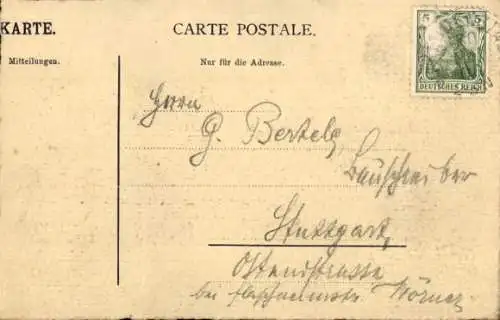 KARTE.
CARTE POSTALE.
Mitteilungen.
Nur für die Adresse.
5 5
DEUTSCHES REICH
Herrn
G. Bertels
Bauschreiber
Stuttgart,
Ostendstrasse
bei